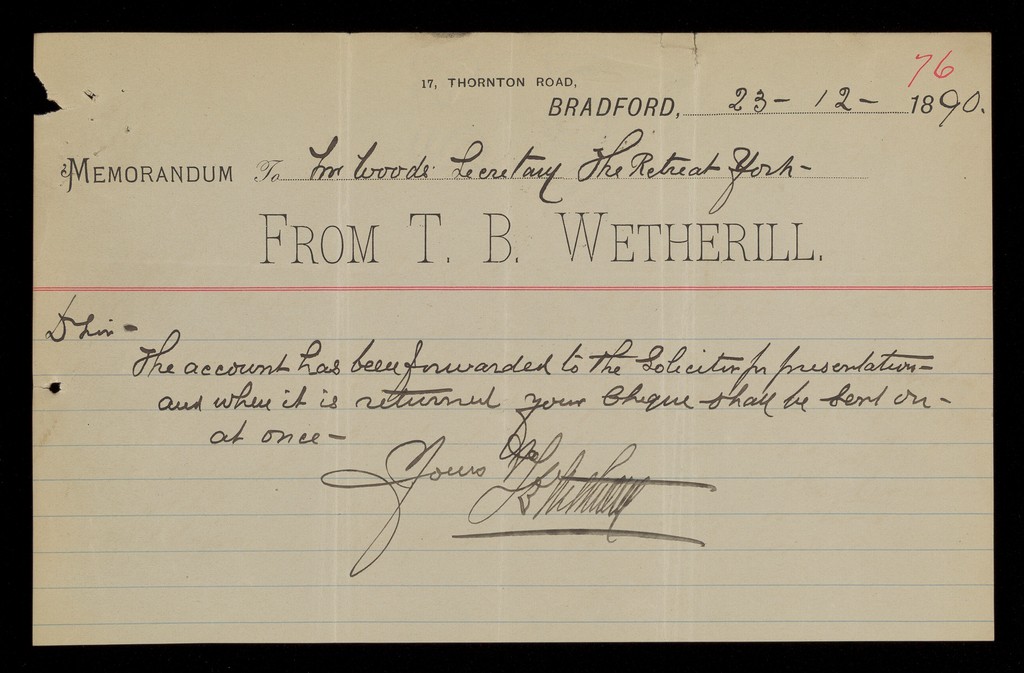 76
17, THORNTON ROAD,
BRADFORD, 23 - 12 - 1890.
MEMORANDUM To Mr Woods Secretary The Retreat York -
FROM T. B. WETHERILL.
D Sir -
The account has been forwarded to the Solicitor for presentation -
and when it is returned your Cheque shall be sent on -
at once -
Yours
T B Wetherill